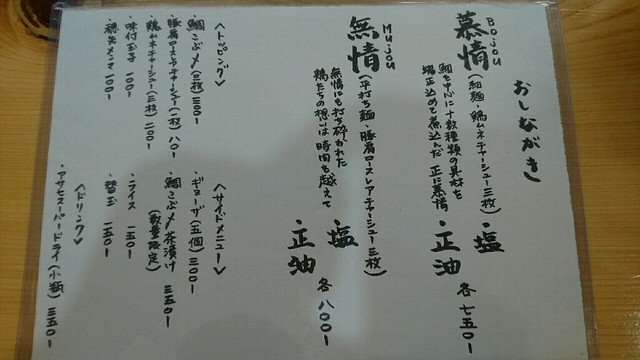 おしながき
Bojou
慕情(細麺・鶏ムネチャーシュー三枚)
鯛を中心に十数種類の具材を
端正込めて煮込んだ 正に慕情
・塩
・正油
各七五〇ー
Mujou
無情(平打ち麺・豚肩ロースレアチャーシュー三枚)
無情にも打ち砕かれた
鶏たちの想いは時間を越えて
・塩
・正油
各八〇〇ー
<トッピング>
・鯛こぶ〆(三枚)三〇〇ー
・豚肩ロースレアチャーシュー(一枚)八〇ー
・鶏ムネチャーシュー(三枚)二〇〇ー
・味付玉子 一〇〇ー
・穂先メンマ 一〇〇ー
<サイドメニュー>
・ギョーザ(五個)三〇〇ー
・鯛こぶ〆茶漬け 三五〇ー
(数量限定)
・ライス 一五〇ー
・替玉 一五〇ー
<ドリンク>
・アサヒスーパードライ(小瓶)三五〇ー